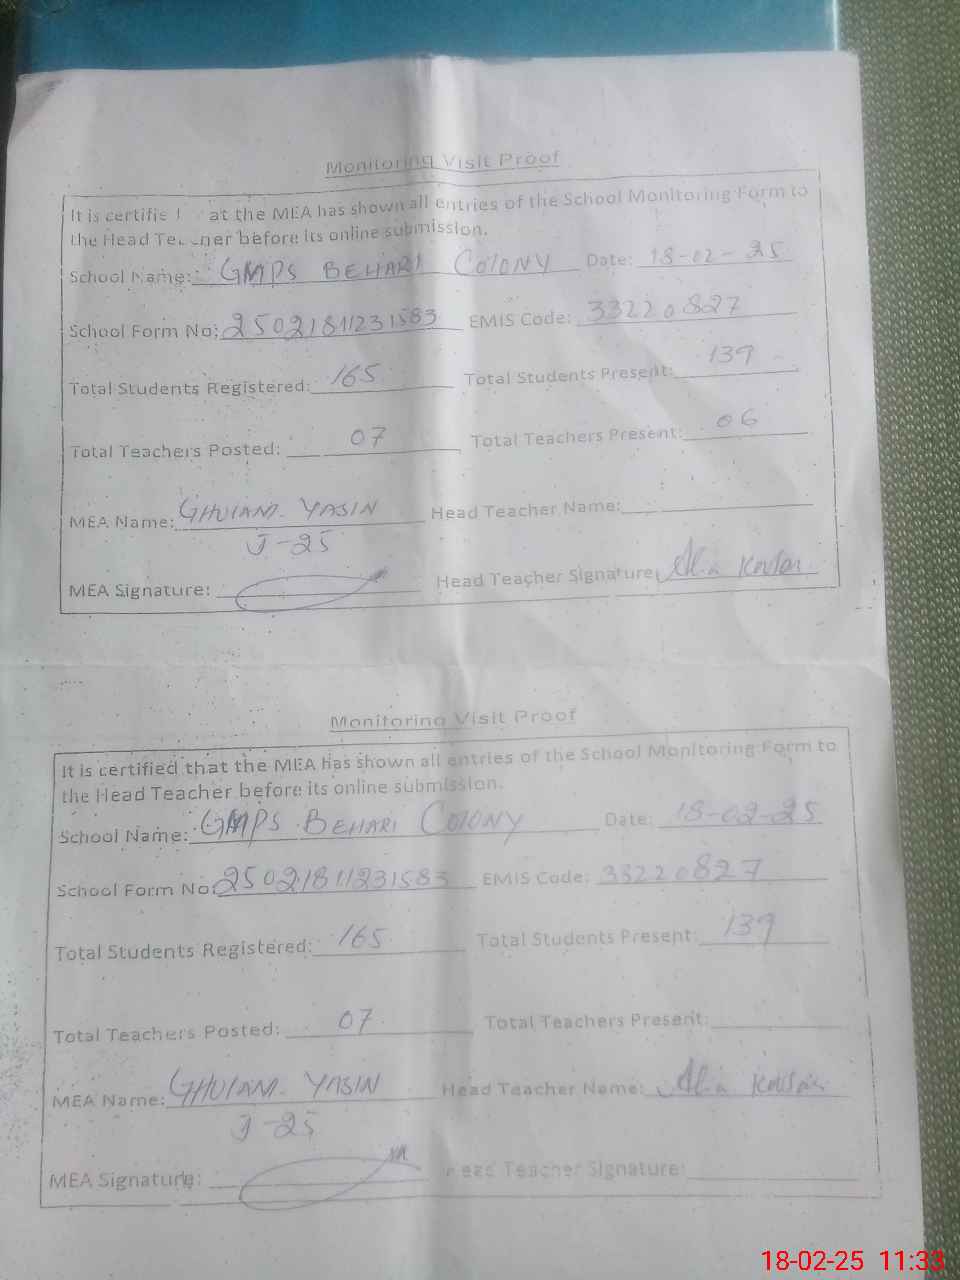 Monitoring Visit Proof
It is certifie at the MEA has shown all entries of the School Monitoring Form to
the Head Teacher before its online submission.
School Name: GMPS BEHARI COLONY Date: 18-02-25
School Form No: 25021811231583 EMIS Code: 33220827
Total Students Registered: 165 Total Students Present: 139
Total Teachers Posted: 07 Total Teachers Present: 06
MEA Name: GHULAM YASIN Head Teacher Name:
J-25
MEA Signature: Head Teacher Signature:
Monitoring Visit Proof
It is certified that the MEA has shown all entries of the School Monitoring Form to
the Head Teacher before its online submission.
School Name: GMPS BEHARI COLONY Date: 18-02-25
School Form No: 25021811231583 EMIS Code: 33220827
Total Students Registered: 165 Total Students Present: 139
Total Teachers Posted: 07 Total Teachers Present:
MEA Name: GHULAM YASIN Head Teacher Name:
J-25
MEA Signature: Head Teacher Signature:
18-02-25 11:33